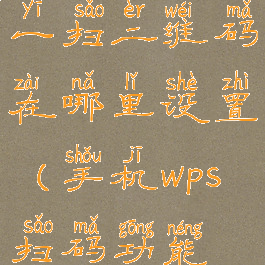 yī sǎo èr wéi mǎ
一扫二维码
zài nǎ lǐ shè zhì
在哪里设置
shǒu jī
(手机wps
sǎo mǎ gōng néng
扫码功能